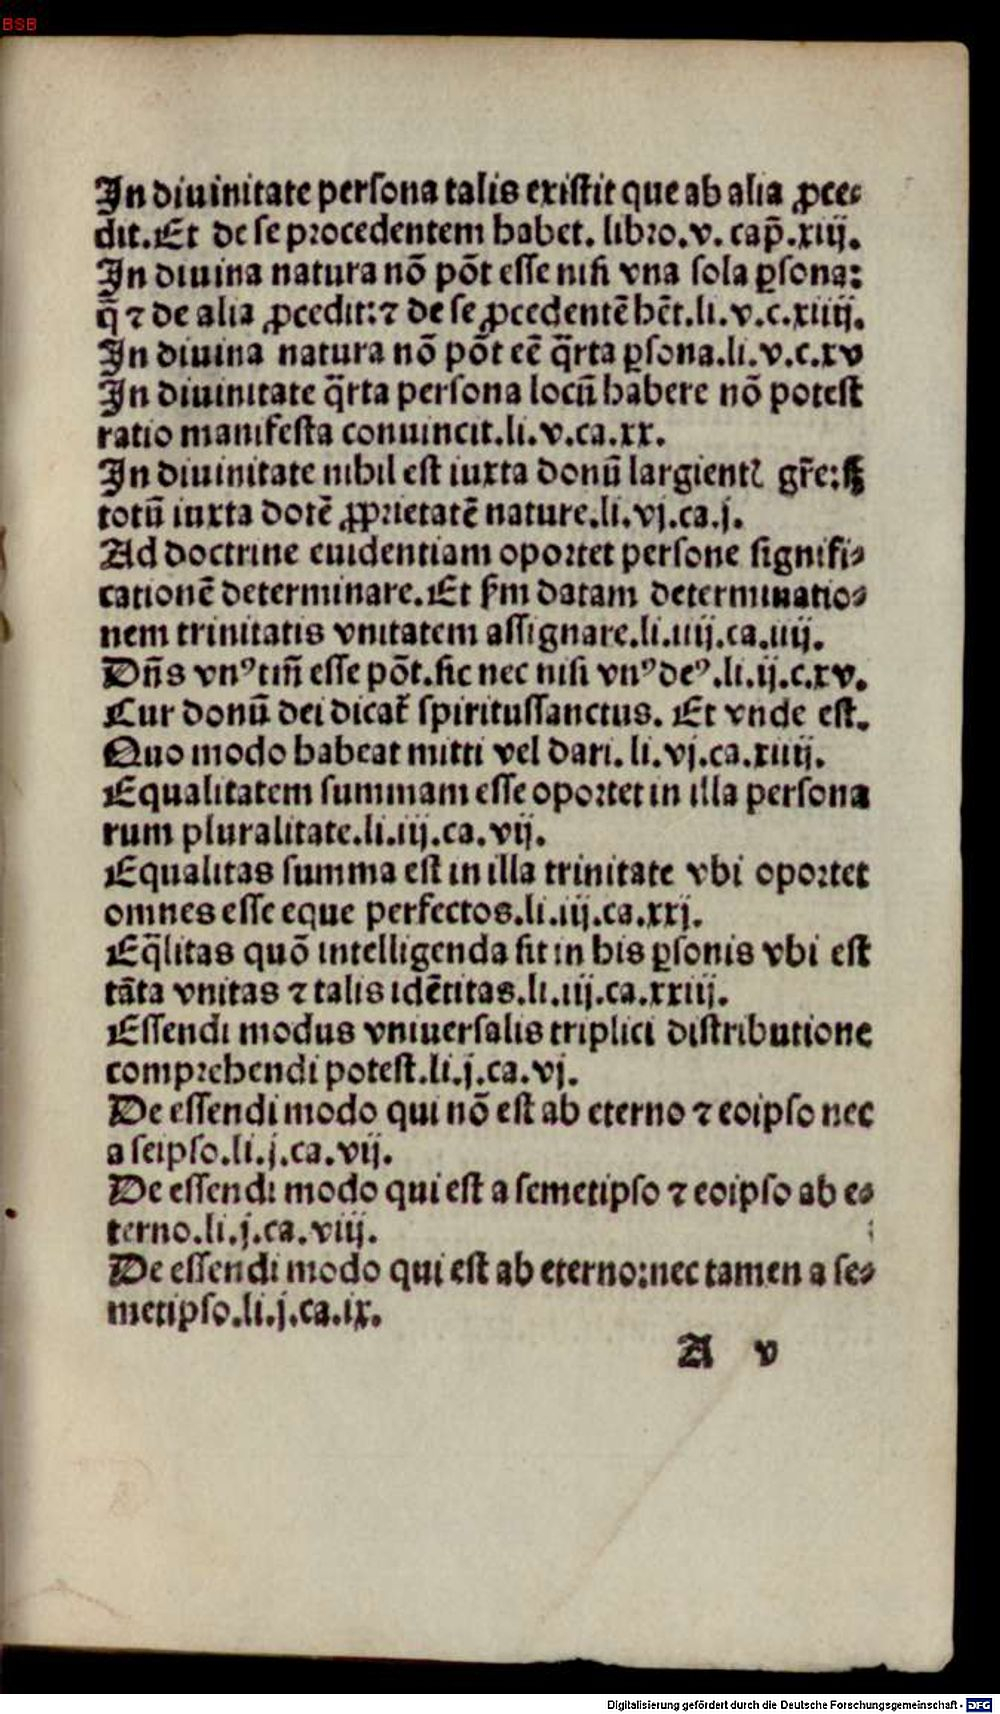 BSB
In diuinitate persona talis existit que ab alia ꝓce⸗
dit. Et de se procedentem habet. libro. v. cap̄. xiij.
In diuina natura nō pōt esse nisi vna sola ꝑsona:
q̄ ⁊ de alia ꝓcedit: ⁊ de se ꝓcedentē hēt. li. v. c. xiiij.
In diuina natura nō pōt eē q̄rta ꝑsona. li. v. c. xv
In diuinitate q̄rta persona locū habere nō potest
ratio manifesta conuincit. li. v. ca. xx.
In diuinitate nihil est iuxta donū largientꝭ gr̄e: sꝫ
totū iuxta dotē ꝓprietatē nature. li. vj. ca. j.
Ad doctrine euidentiam oportet persone signifi⸗
cationē determinare. Et ẜm datam determinatio⸗
nem trinitatis vnitatem assignare. li. iiij. ca. iiij.
Dn̄s vnꝰ tm̄ esse pōt. sic nec nisi vnꝰ deꝰ. li. ij. c. xv.
Cur donū dei dicat̄ spiritussanctus. Et vnde est.
Quo modo habeat mitti vel dari. li. vj. ca. xiiij.
Equalitatem summam esse oportet in illa persona
rum pluralitate. li. iij. ca. vij.
Equalitas summa est in illa trinitate vbi oportet
omnes esse eque perfectos. li. iij. ca. xxj.
Eq̄litas quō intelligenda sit in his ꝑsonis vbi est
tāta vnitas ⁊ talis idētitas. li. iij. ca. xxiij.
Essendi modus vniuersalis triplici distributione
comprehendi potest. li. j. ca. vj.
De essendi modo qui nō est ab eterno ⁊ eoipso nec
a seipso. li. j. ca. vij.
De essendi modo qui est a semetipso ⁊ eoipso ab e⸗
terno. li. j. ca. viij.
De essendi modo qui est ab eterno: nec tamen a se⸗
metipso. li. j. ca. ix.
A v
Digitalisierung gefördert durch die Deutsche Forschungsgemeinschaft - DFG